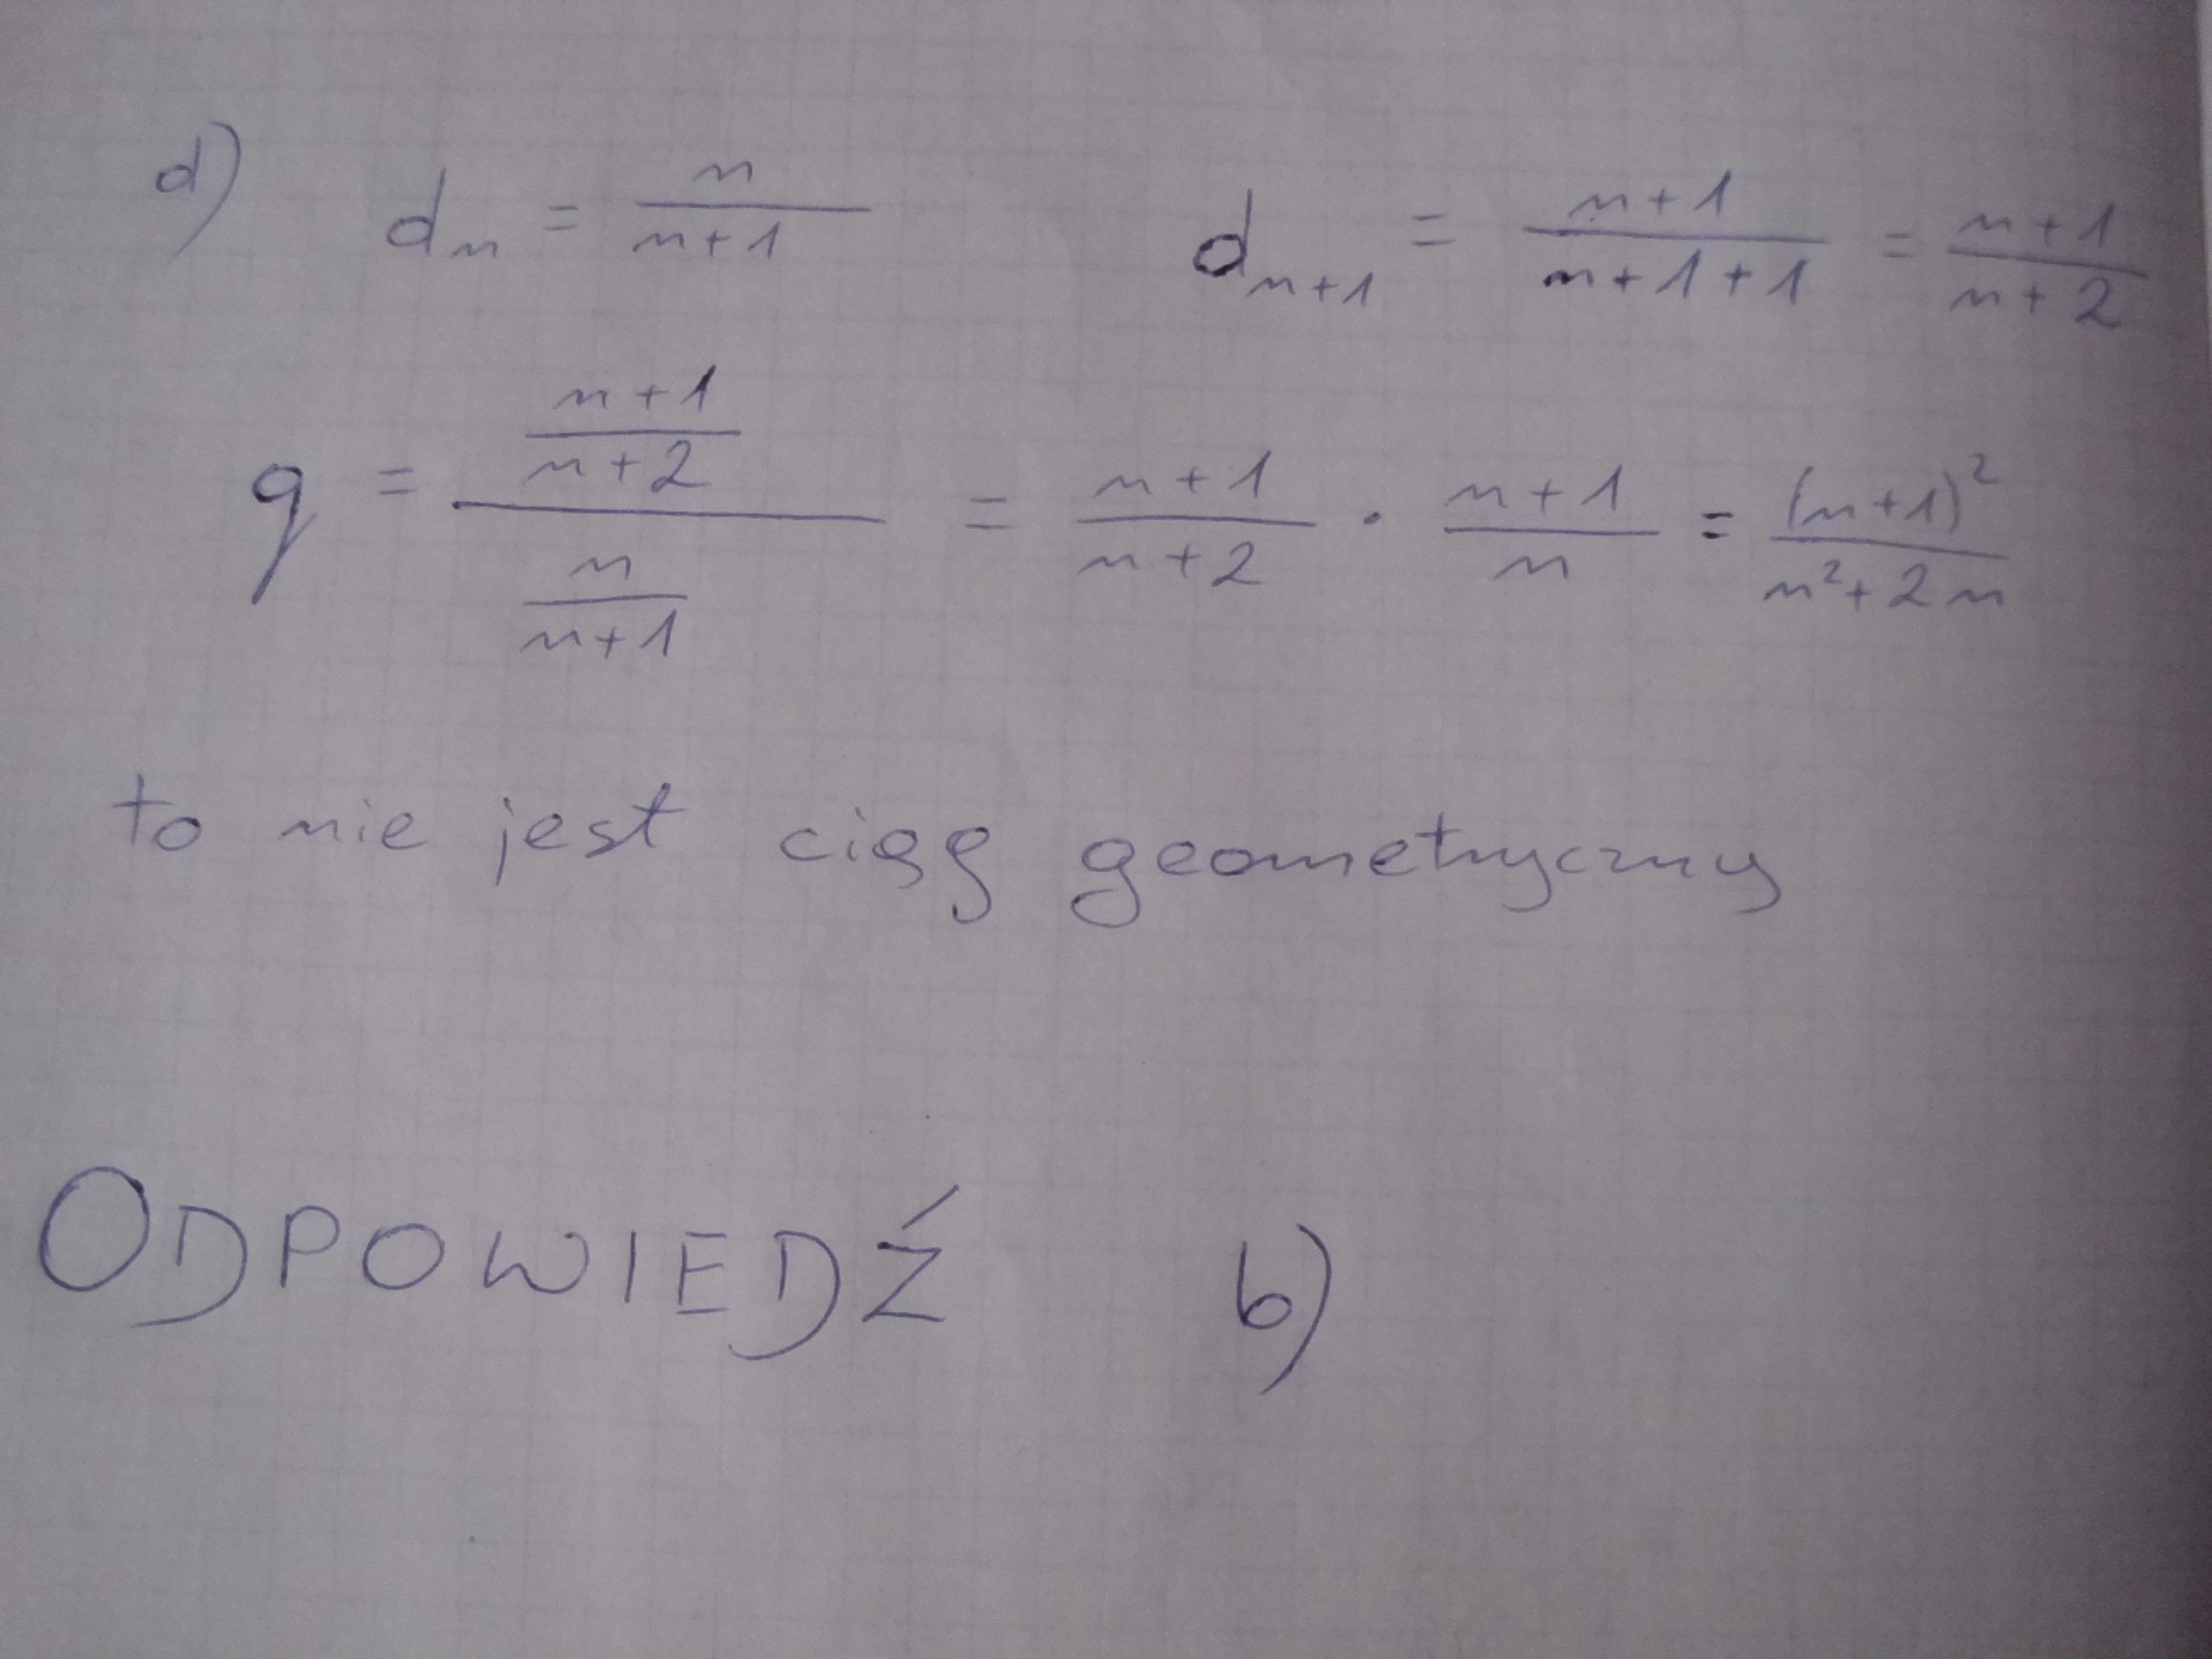 d) dₙ = n/(n+1) dₙ₊₁ = (n+1)/(n+1+1) = (n+1)/(n+2)
q = ((n+1)/(n+2))/(n/(n+1)) = (n+1)/(n+2) · (n+1)/n = (n+1)²/(n²+2n)
to nie jest ciąg geometryczny
ODPOWIEDŹ b)